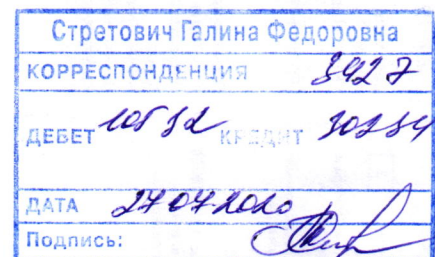 Стретович Галина Федоровна
КОРРЕСПОНДЕНЦИЯ 3427
ДЕБЕТ 10532 КРЕДИТ 30234
ДАТА 27 07 2020
Подпись: